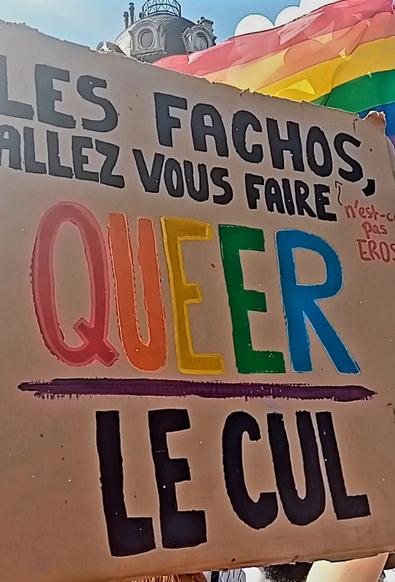 LES FACHOS,
ALLEZ VOUS FAIRE
QUEER
LE CUL
n'est-ce
pas
EROS